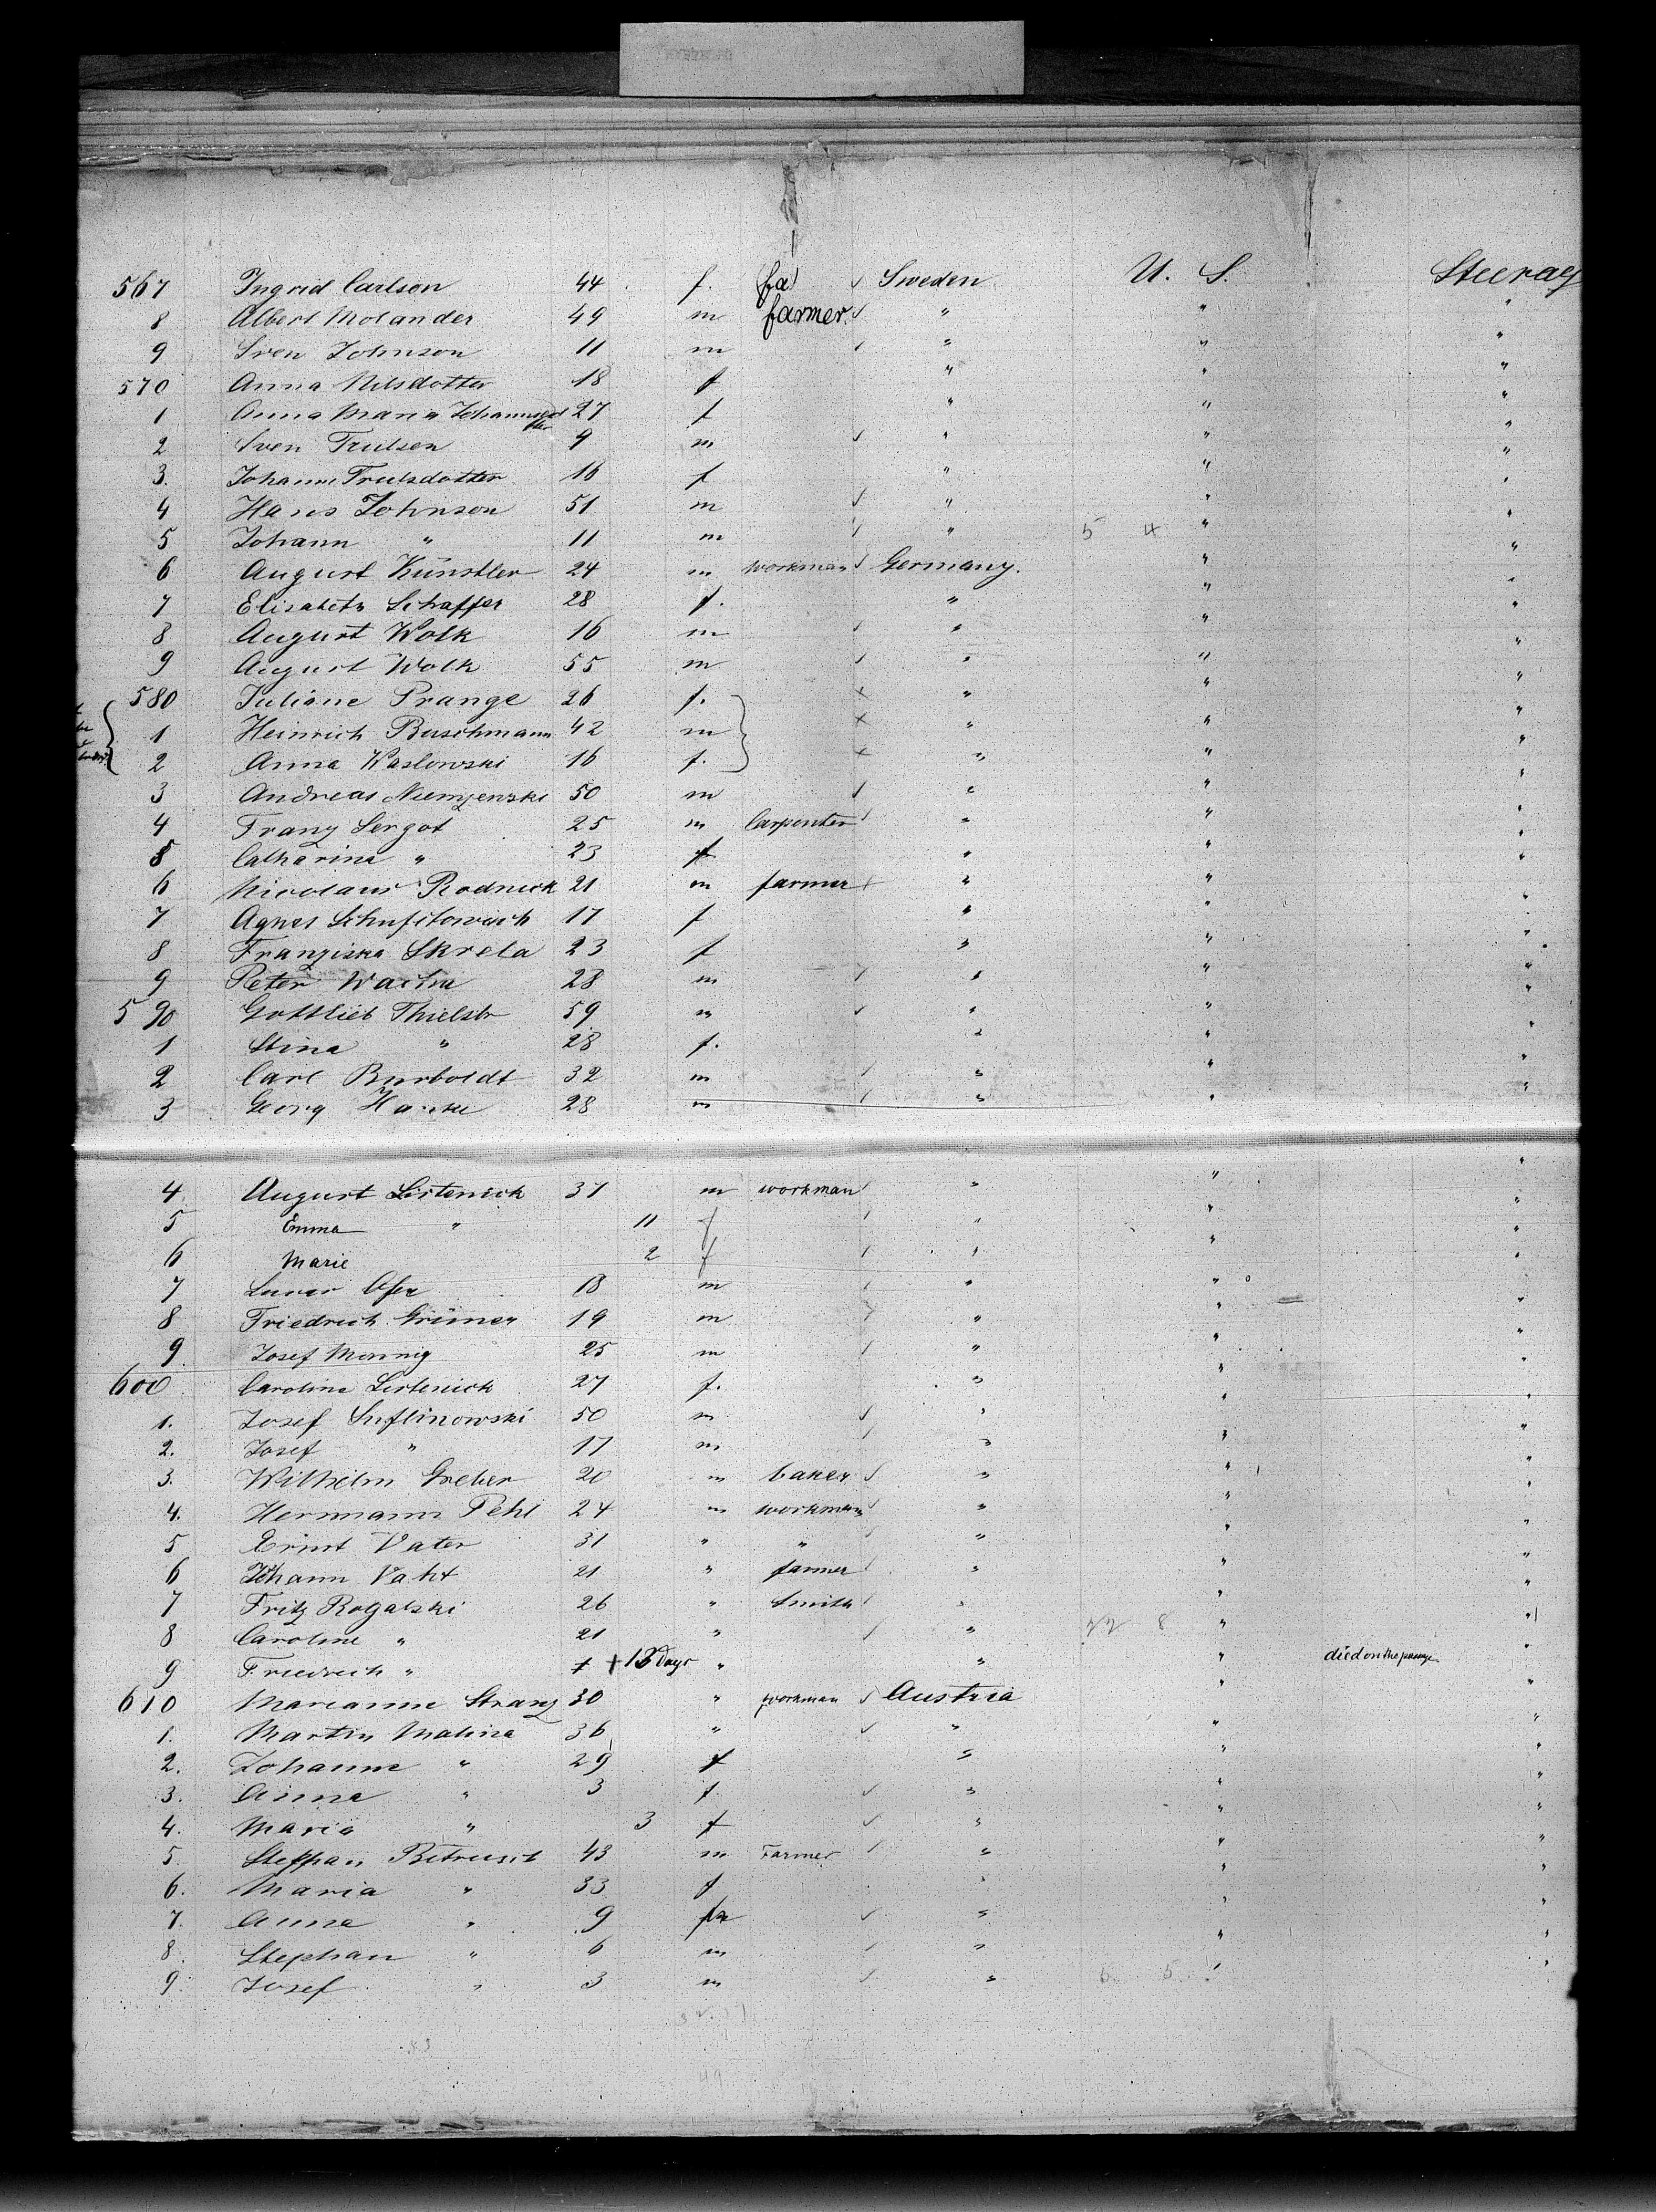 567 Ingrid Carlson 44 f. fa Sweden U. S. Steerag
8 Albert Molander 49 m farmer "  "  "
9 Sven Johnson 11 m "  "  "
570 Anna Nilsdotter 18 f "  "  "
1 Anna Maria 27 f "  "  "
2 Sven Trulsen 9 m "  "  "
3. Johanne Trulsdotter 16 f "  "  "
4 Hans Johnson 51 m "  "  "
5 Johann " 11 m " 5 4 "  "
6 August Künstler 24 m workman Germany. "  "
7 Elisabeth Schaffer 28 f. "  "  "
8 August Wolk 16 m "  "  "
9 August Wolk 55 m "  "  "
580 Juliane Prange 26 f. × "  "  "
1 Heinrich Buschmann 42 m × "  "  "
2 Anna Waslowski 16 f. × "  "  "
3 Andreas 50 m "  "  "
4 Franz Sergot 25 m Carpenter "  "  "
5 Catharina " 23 f "  "  "
6 Nicolaus Rodneck 21 m farmer "  "  "
7 Agnes 17 f "  "  "
8 Franziska Skrela 23 f "  "  "
9 Peter 28 m "  "  "
590 Gottlieb 59 m "  "  "
1 Stina " 28 f. "  "  "
2 Carl Burboldt 32 m "  "  "
3 Georg Hanke 28 m "  "  "
4 August Listenick 31 m workman "  "  "
5 Emma " 11 f "  "  "
6 Marie 2 f "  "  "
7 18 m "  "  "
8 Friedrich Grimer 19 m "  "  "
9. Josef 25 m "  "  "
600 Caroline Listenick 27 f. "  "  "
1. Josef Suflinowski 50 m "  "  "
2. Josef " 17 m "  "  "
3. Wilhelm Greber 20 m baker "  "  "
4. Hermann Pehl 24 m workman "  "  "
5 Ernst Vater 31 "  "  "  "  "
6 Johann Vaht 21 " farmer "  "  "
7 Fritz Rogalski 26 " Smith "  "  "
8 Caroline " 21 "  " 22 8 "  "
9 Friedrich " + 18 Days "  "  " died on the passage "
610 Marianne Stranz 30 " workman Austria "  "
1. Martin Malina 36 "  "  "  "
2. Johanne " 29 f "  "  "
3. Anna " 3 f. "  "  "
4. Maria " 3 f "  "  "
5. Stephan 43 m Farmer "  "  "
6. Maria " 33 f "  "  "
7. Anna " 9 "  "  "
8. Stephan " 6 m "  "  "
9. Josef " 3 m " 6 5 "  "